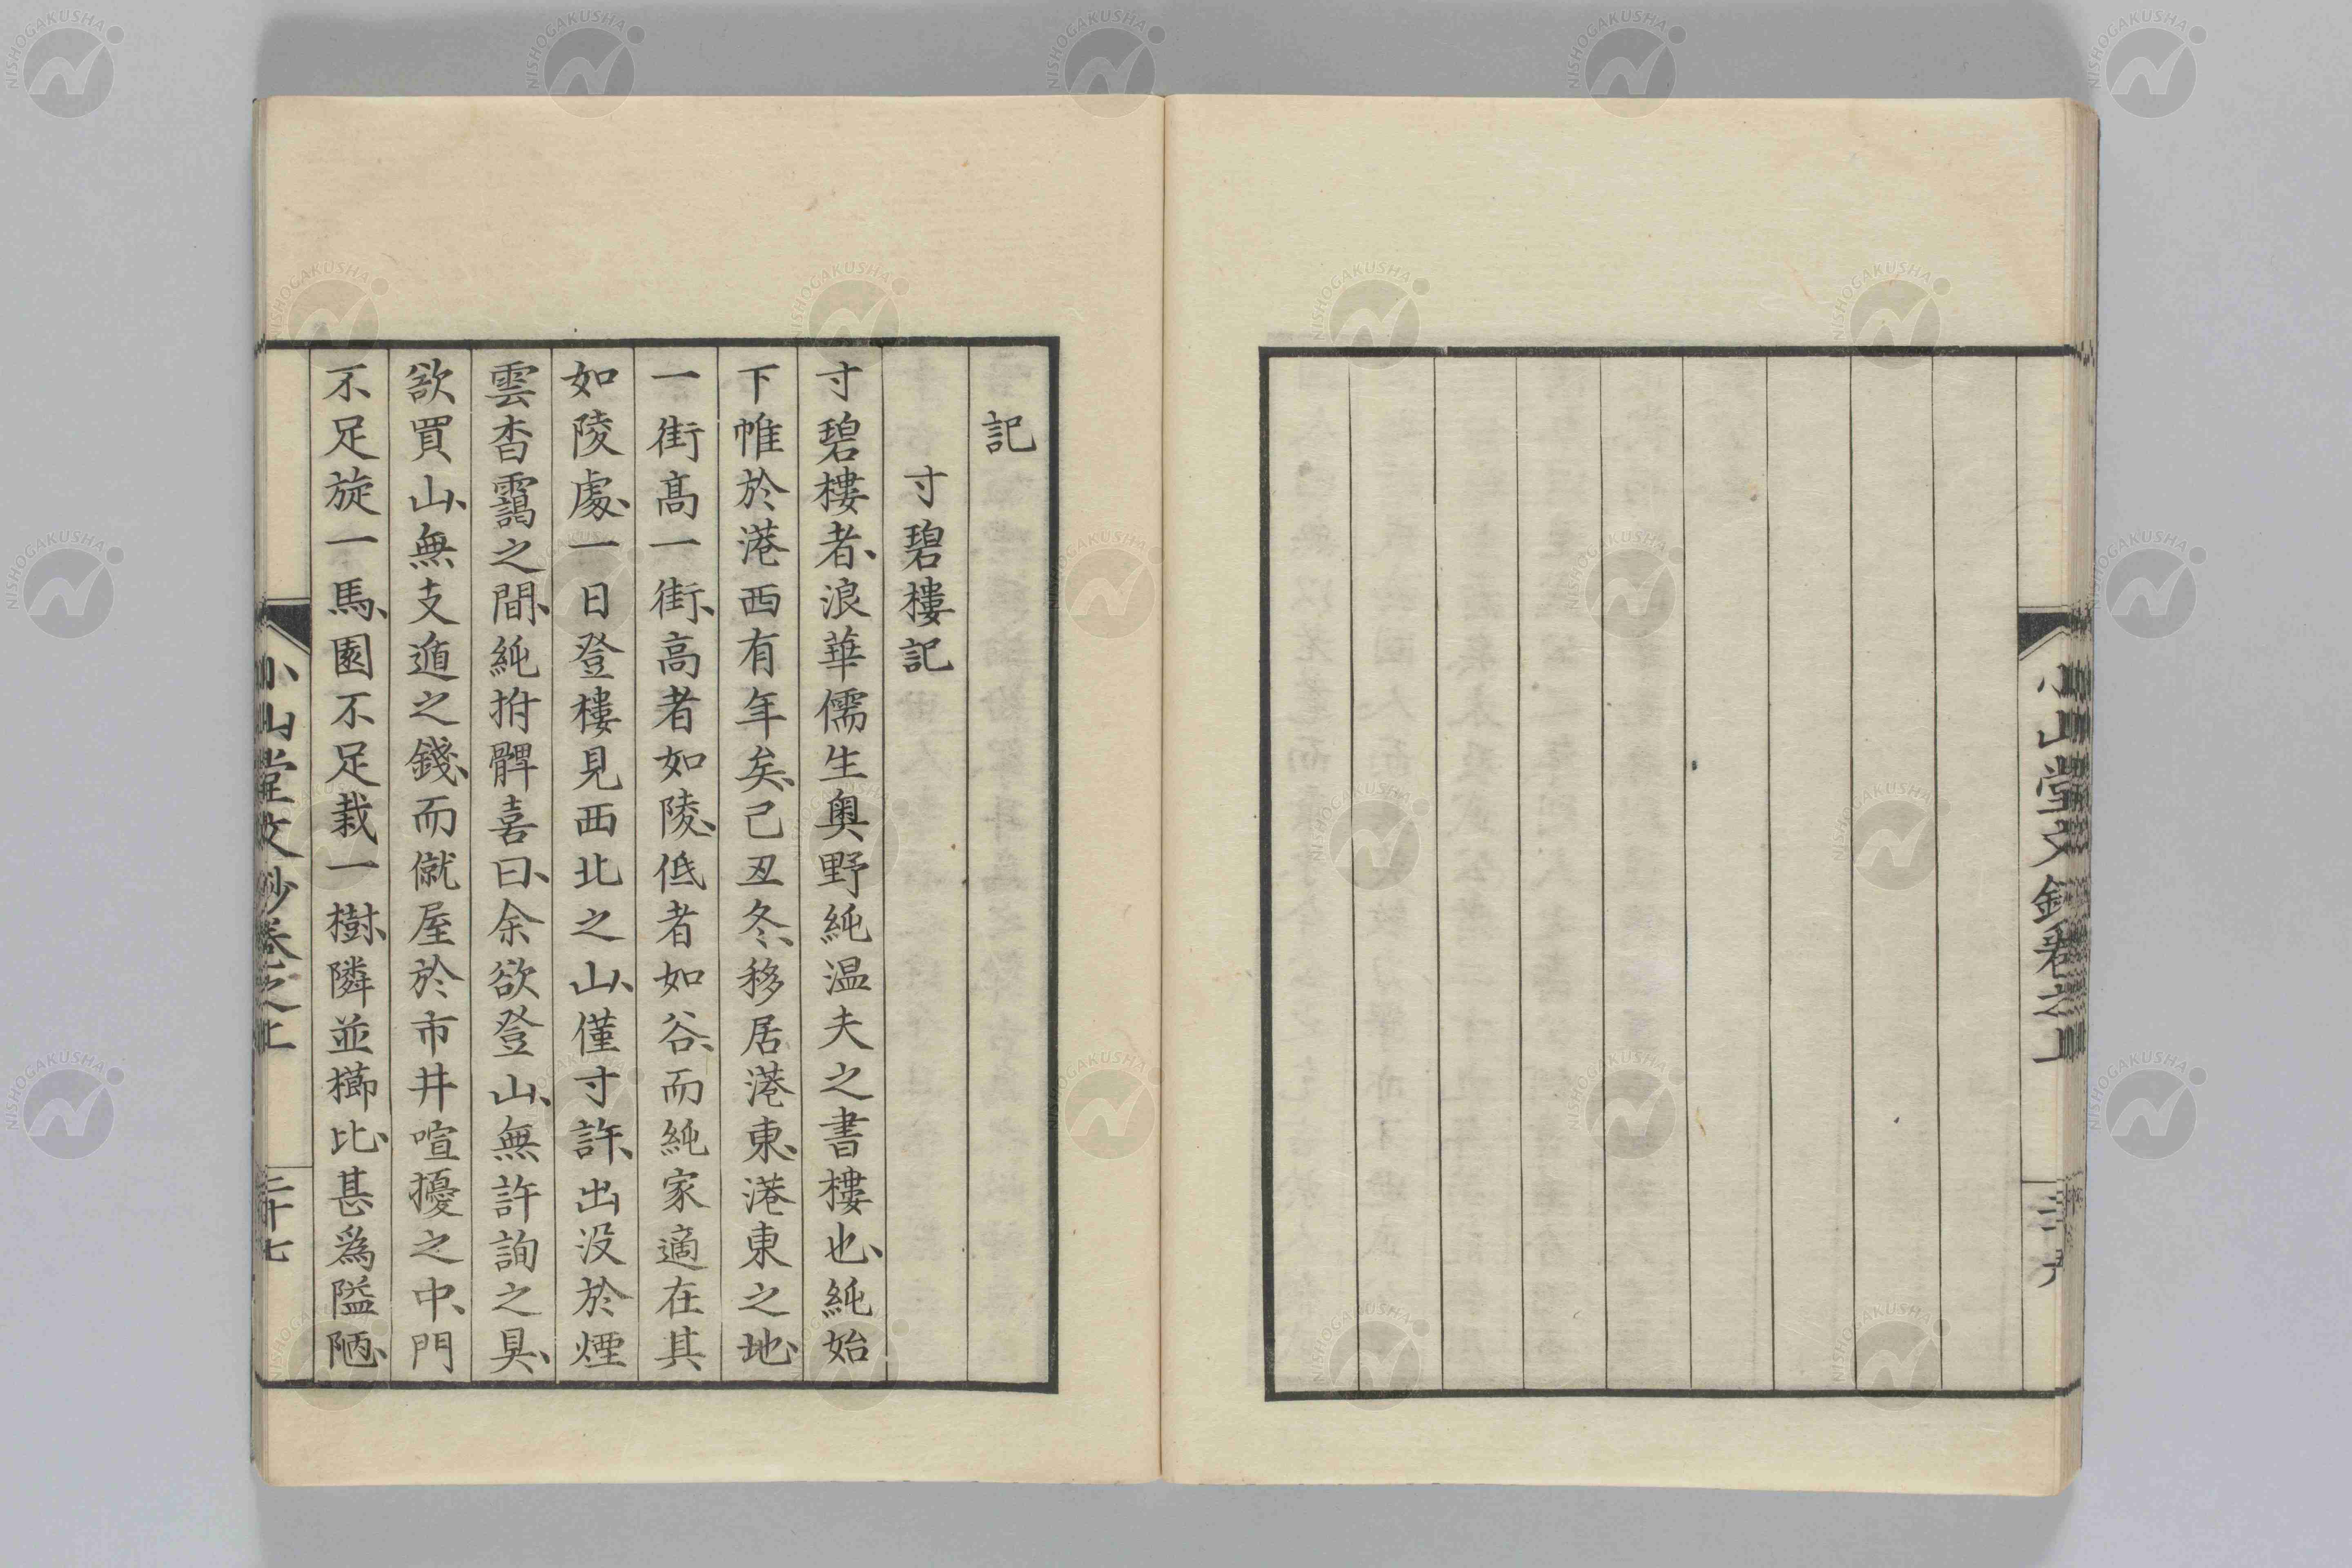 小山堂文鈔卷之上
記
寸碧樓記
寸碧樓者、浪華儒生奥野純温夫之書樓也、純始
下帷於港西有年矣、己丑冬、移居港東、港東之地、
一街高一街、高者如陵、低者如谷、而純家適在其
如陵處、一日登樓見西北之山、僅寸許、出没於煙
雲杳靄之間、純拊髀喜曰、余欲登山、無許詢之具、
欲買山、無支遁之錢、而僦屋於市井喧擾之中、門
不足旋一馬、園不足栽一樹、隣並櫛比、甚爲隘陋、
小山堂文鈔卷之上
二十七